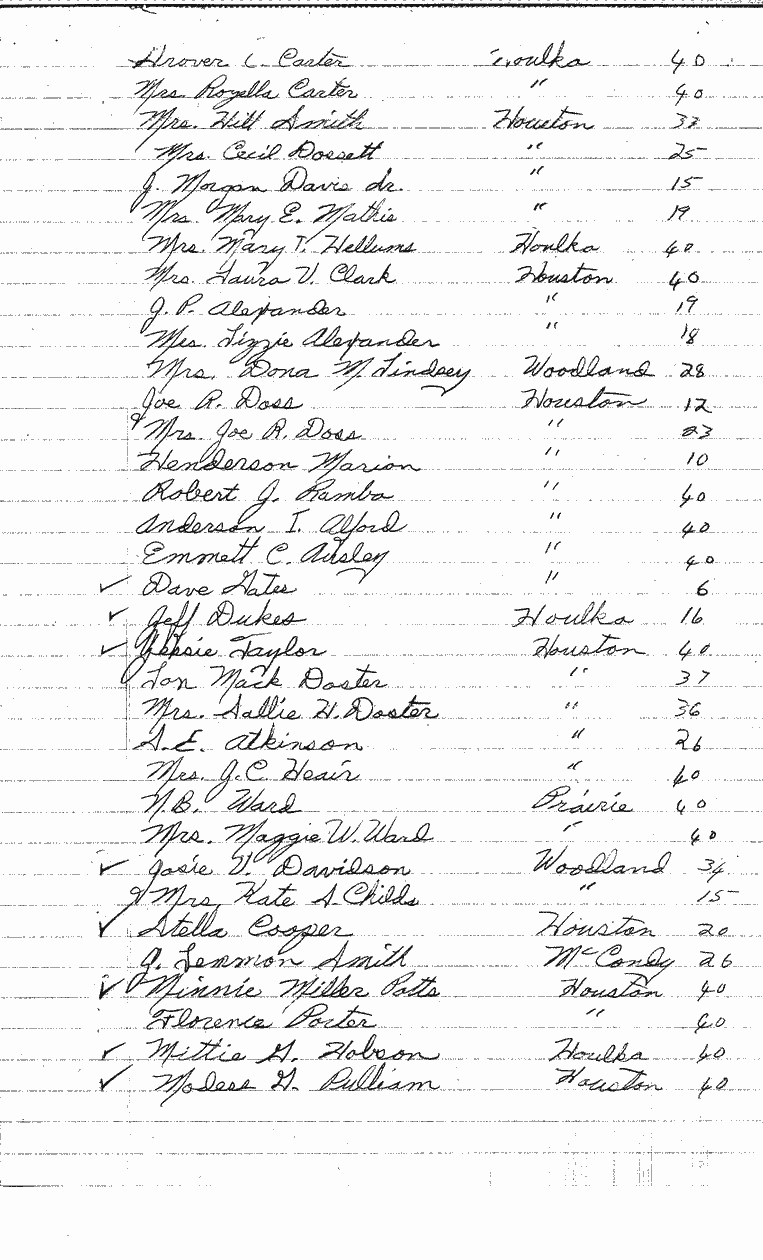 Grover C. Carter Houlka 40
Mrs. Rozella Carter " 40
Mrs. Hill Smith Houston 33
Mrs. Cecil Dossett " 25
J. Morgan Davis Jr. " 15
Mrs. Mary E. Mathis " 19
Mrs. Mary T. Hellums Houlka 40
Mrs. Laura V. Clark Houston 40
J. P. Alexander " 19
Mrs. Lizzie Alexander " 18
Mrs. Dona M. Lindsey Woodland 28
Joe R. Doss Houston 12
Mrs. Joe R. Doss " 23
Henderson Marion " 10
Robert J. Ramba " 40
Anderson I. Alford " 40
Emmett C. Ausley " 40
✓ Dave Gates " 6
✓ Jeff Dukes Houlka 16
✓ Taylor Houston 40
Lon Mack Doster " 37
Mrs. Sallie H. Doster " 36
S. E. Atkinson " 26
Mrs. J. C. Heair " 40
N. B. Ward Prairie 40
Mrs. Maggie W. Ward " 40
✓ Josie V. Davidson Woodland 34
Mrs. Kate S. Childs " 15
✓ Stella Cooper Houston 20
J. Lemmon Smith McCondy 26
✓ Minnie Miller Potts Houston 40
Florence Porter " 40
✓ Mittie G. Hobson Houlka 40
✓ Modess G. Pulliam Houston 40